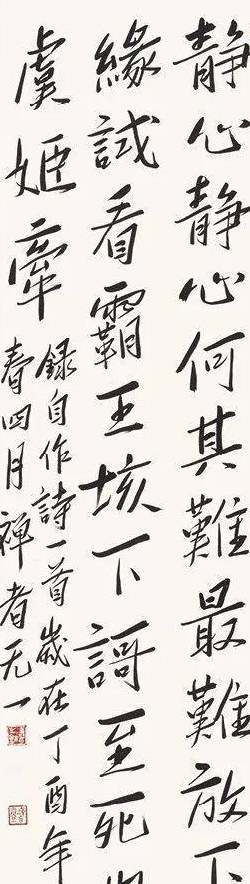 静心静心何其難最難放下
緣試看霸王垓下謌至死
虞姬牽
錄自作詩一首歲在丁酉年
春四月禪者无一